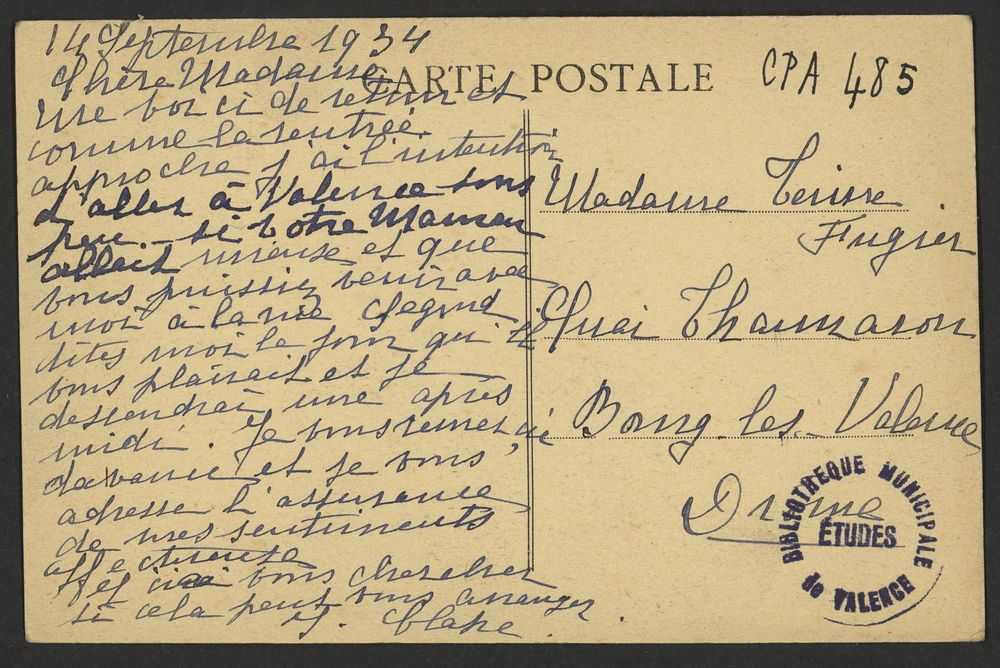 14 Septembre 1934
Chère Madame,
Me voici de retour et
comme la rentrée
approche j'ai l'intention
d'aller à Valence sous
peu. si votre Maman
allait mieuse et que
vous puissiez venir avec
moi à la rue
dites moi le jour qui
vous plairait et je
dessendrai une après
midi. Je vous remerci
davance et je vous
adresse l'assurance
de mes sentiments
affectueuse
et irai vous chercher
si cela peut vous arranger.
CARTE POSTALE
CPA 485
Madame
Fugier
Quai Thannaron
Bourg les Valence
Drôme
BIBLIOTHEQUE MUNICIPALE
ÉTUDES
de VALENCE